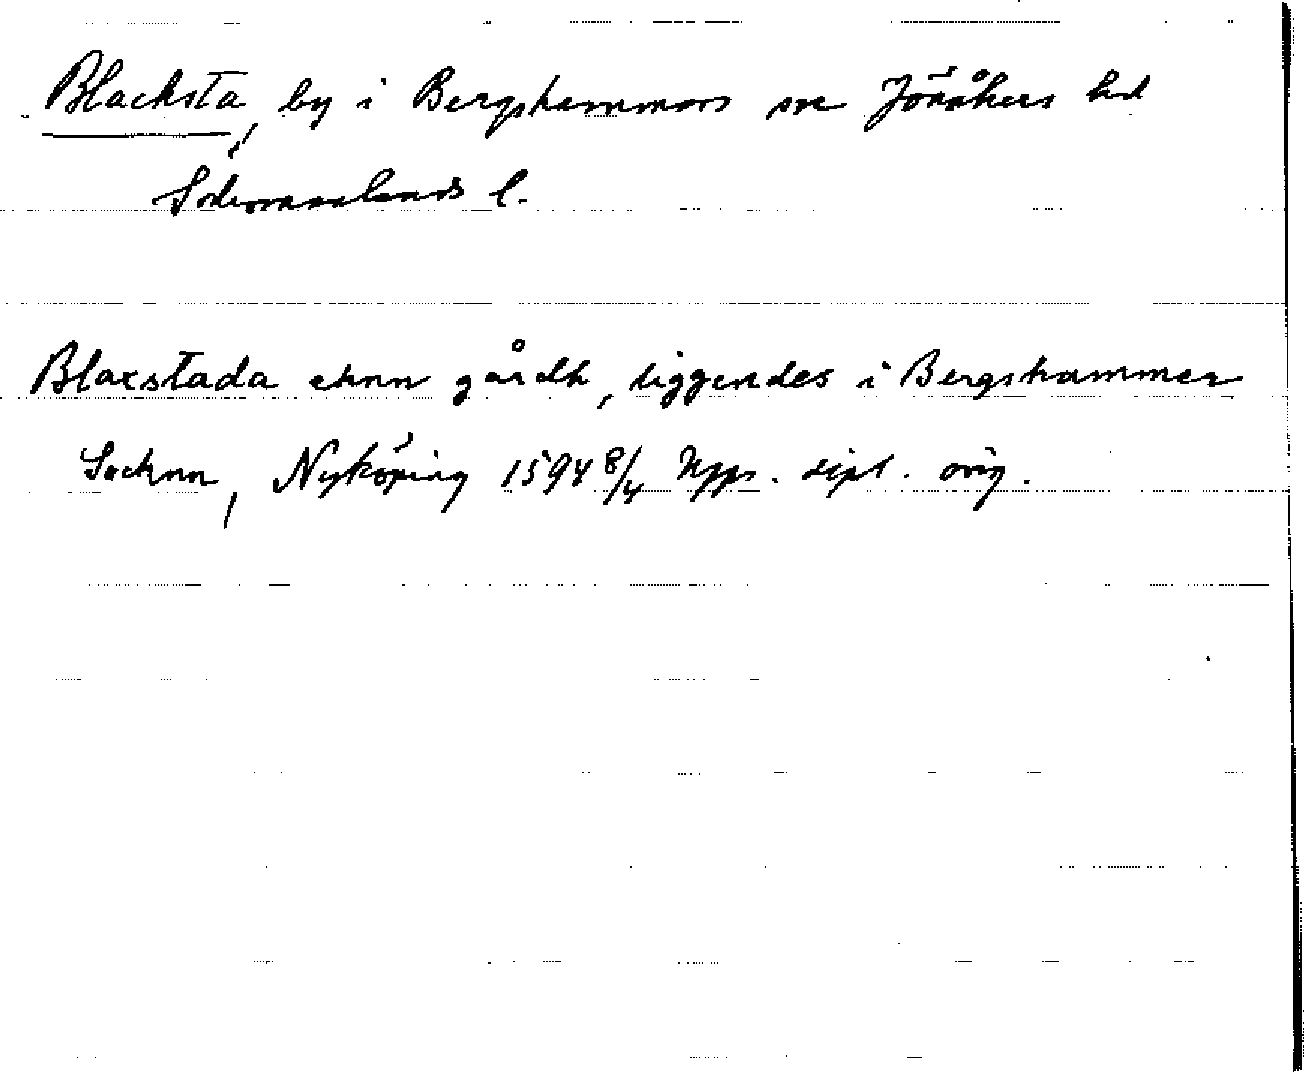 Blacksta, by i Bergshammars sn Jönåkers hd
Södermanlands l.
Blaxstada ehnn gårdh, liggendes i Bergshammer
Sochnn, Nyköping 1594 8/4 Upps. dipl. orig.